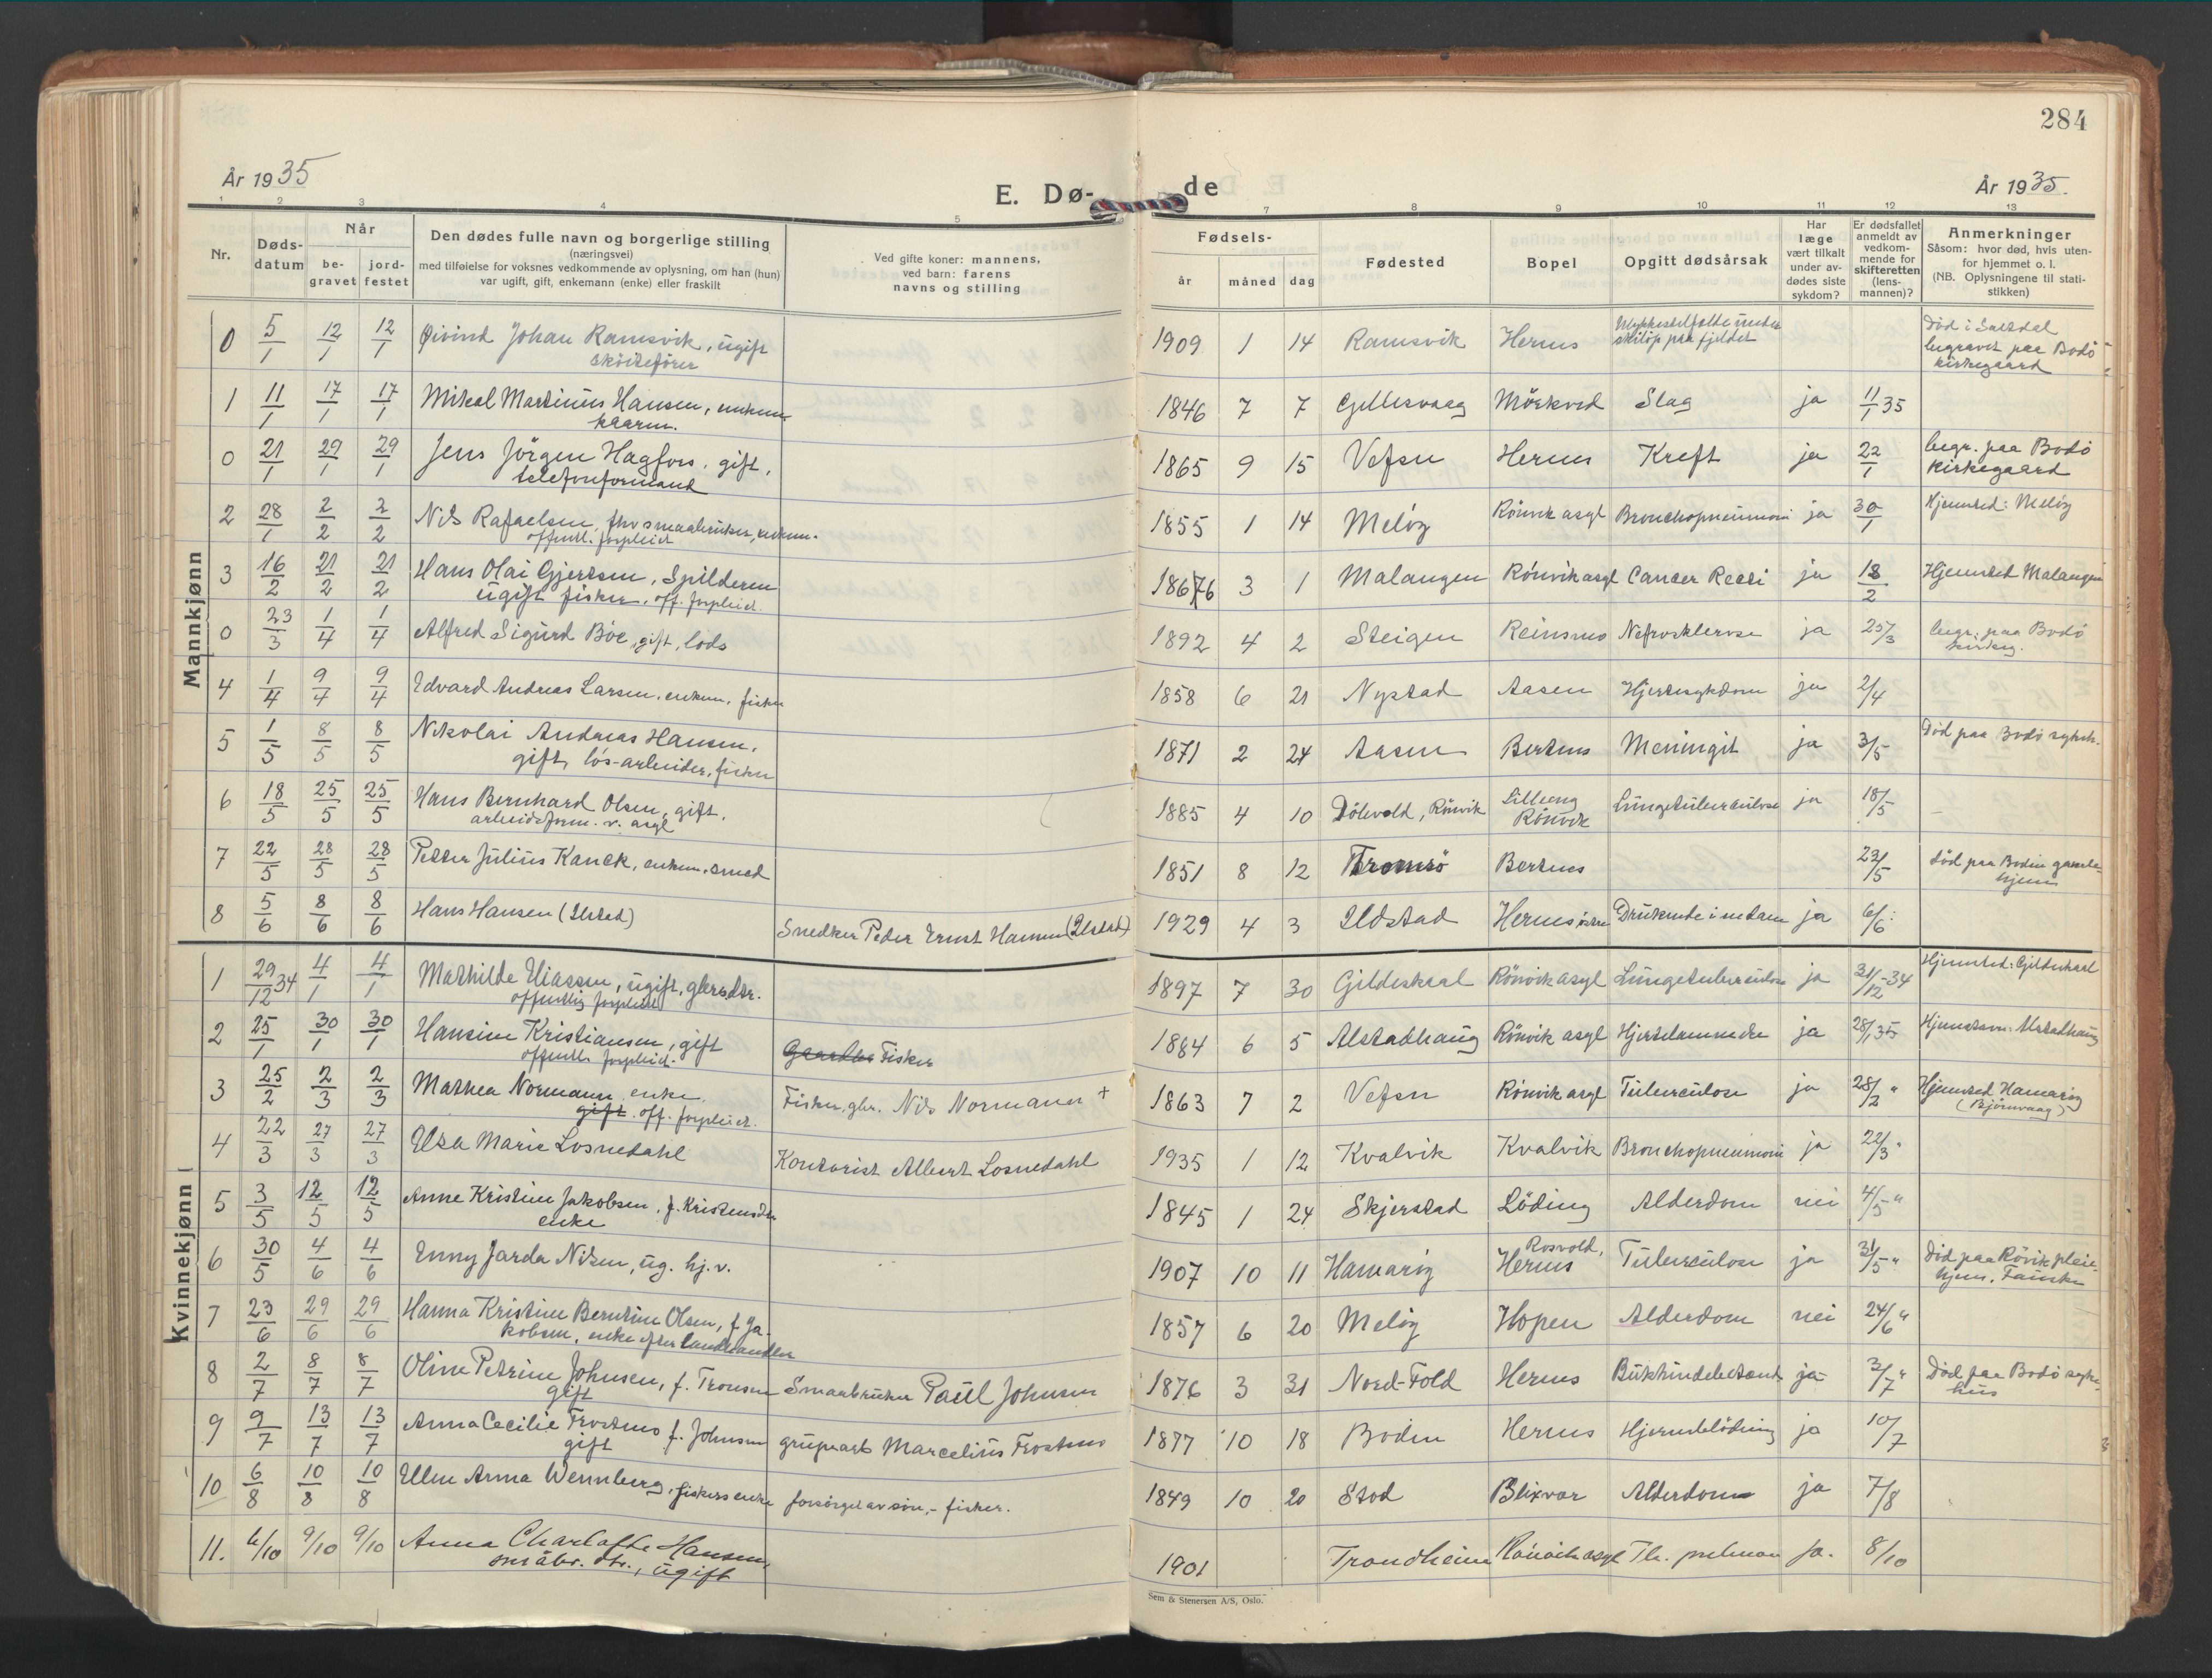 284
År 1935
E. Dø-
de
År 1935.
1 2 3 4 5 7 8 9 10 11 12 13
Nr.
Døds-
datum
Når
be-
gravet
jord-
festet
Den dødes fulle navn og borgerlige stilling
(næringsvei)
med tilføielse for voksnes vedkommende av oplysning, om han (hun)
var ugift, gift, enkemann (enke) eller fraskilt
Ved gifte koner: mannens,
ved barn: farens
navns og stilling
Fødsels-
år måned dag
Fødested
Bopel
Opgitt dødsårsak
Har
læge
vært tilkalt
under av-
dødes siste
sykdom?
Er dødsfallet
anmeldt av
vedkom-
mende for
skifteretten
(lens-
mannen)?
Anmerkninger
Såsom: hvor død, hvis uten-
for hjemmet o. l.
(NB. Oplysningene til stati-
stikken)
Mannkjønn
0 5/1 12/1 12/1 Øivind Johan Ramsvik, ugift
skøitefører
1909 1 14 Ramsvik Hernes
skiløp paa fjeldet
Død i Saltdal
begravet paa Bodø
kirkegaard
1 11/1 17/1 17/1 Mikal Martinus Hansen, enkem.
kaarm.
1846 7 7 Gjellesvaag Mørkved Slag ja 11/1 35
0 21/1 29/1 29/1 Jens Jörgen Hagfors, gift,
telefonformand
1865 9 15 Vefsn Hernes Kreft ja 22/1 begr. paa Bodö
kirkegaard
2 28/1 2/2 2/2 Nils Rafaelsen, fhv smaabruker, enkem.
offentl. forpleiet
1855 1 14 Melöy Rönvik asyl Bronchopneumoni ja 30/1 Hjemsted: Melöy
3 16/2 21/2 21/2 Hans Olai Gjertsen, Spilderen
ugift fisker, off. forpleiet.
1867/76 3 1 Malangen Rönvik asyl Cancer Recti ja 18/2 Hjemsted Malangen
0 23/3 1/4 1/4 Alfred Sigurd Böe, gift, lods
1892 4 2 Steigen Reinsmo Nefrosklerose ja 25/3 begr. paa Bodö
kirkeg.
4 1/4 9/4 9/4 Edvard Andreas Larsen, enkem. fisker
1858 6 21 Nystad Aasen Hjertesykdom ja 2/4
5 1/5 8/5 8/5 Nikolai Andreas Hansen,
gift, lös-arbeider, fisker
1871 2 24 Aasen Bertnes Meningit ja 3/5 Död paa Bodö sykeh.
6 18/5 25/5 25/5 Hans Bernhard Olsen, gift,
arbeidsform. v. asyl
1885 4 10 Dölvold, Rönvik Lilleeng
Rönvik Lungetuberculose ja 18/5
7 22/5 28/5 28/5 Petter Julius Kanck, enkem. smed
1851 8 12 Tromsö Bertnes 23/5 död paa Bodin gamle-
hjem
8 5/6 8/6 8/6 Hans Hansen (Ilstad)
Snedker Peder Ernst Hansen (Ilstad)
1929 4 3 Ildstad Hernes Druknede i ja 6/6
Kvinnekjønn
1 29/12 34 4/1 4/1 Mathilde Eliassen, ugift, gbrs.dtr.
offentlig forpleiet
1897 7 30 Gildeskaal Rönvik asyl Lungetuberculose ja 31/12-34 Hjemsted: Gildeskaal
2 25/1 30/1 30/1 Hansine Kristiansen, gift
offentl. forpleiet.
Fisker
1884 6 5 Alstadhaug Rönvik asyl Hjertelammelse ja 28/1 35 Alstadhaug
3 25/2 2/3 2/3 Mathea Normann enke,
gift. off. forpleiet.
Fisker, gbr. Nils Normann +
1863 7 2 Vefsn Rönvik asyl Tuberculose ja 28/2 " Hjemsted Hamaröy
(Björnvaag)
4 22/3 27/3 27/3 Elsa Marie Losnedahl
Kontorist Albert Losnedahl
1935 1 12 Kvalvik Kvalvik Bronchopneumoni ja 22/3 "
5 3/5 12/5 12/5 Anne Kristine Jakobsen, f. Kristensdtr
enke
1845 1 24 Skjerstad Löding Alderdom nei 4/5 "
6 30/5 4/6 4/6 Enny Jarda Nilsen, ug. hj. v.
1907 10 11 Hamaröy Rosvold,
Hernes Tuberculose ja 31/5 " Död paa Rövik pleie-
hjem, Fauske
7 23/6 29/6 29/6 Hanna Kristine Berntine Olsen, f. Ja-
kobsen, enke efter landhandler
1857 6 20 Melöy Hopen Alderdom nei 24/6 "
8 2/7 8/7 8/7 Oline Petrine Johnsen, f. Tronsen
gift
Smaabruker Paul Johnsen
1876 3 31 Nord-Fold Hernes Bukhindebetænd ja 3/7 " Död paa Bodö syke-
hus
9 9/7 13/7 13/7 Anna Cecilie Frostmo f. Johnsen
gift
grupearb Marcelius Frostmo
1877 10 18 Bodin Hernes Hjerneblödning ja 10/7
10 6/8 10/8 10/8 Ellen Anna Wennberg, fiskers enke
forsörget av sön, - fisker.
1849 10 20 Stod Blixvær Alderdom ja 7/8
11. 6/10 9/10 9/10 Anna Charlotte Hansen,
småbr. dtr., ugift
1901 Trondheim Rönvik asyl Tb. pulmon ja. 8/10
Sem & Stenersen A/S, Oslo.